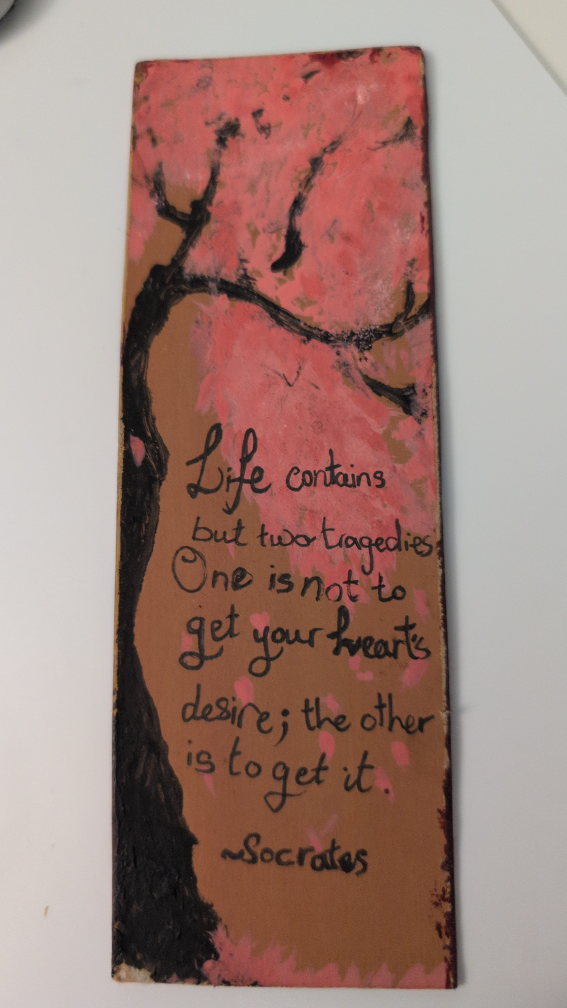 Life contains
but two tragedies
One is not to
get your heart's
desire; the other
is to get it.
~Socrates